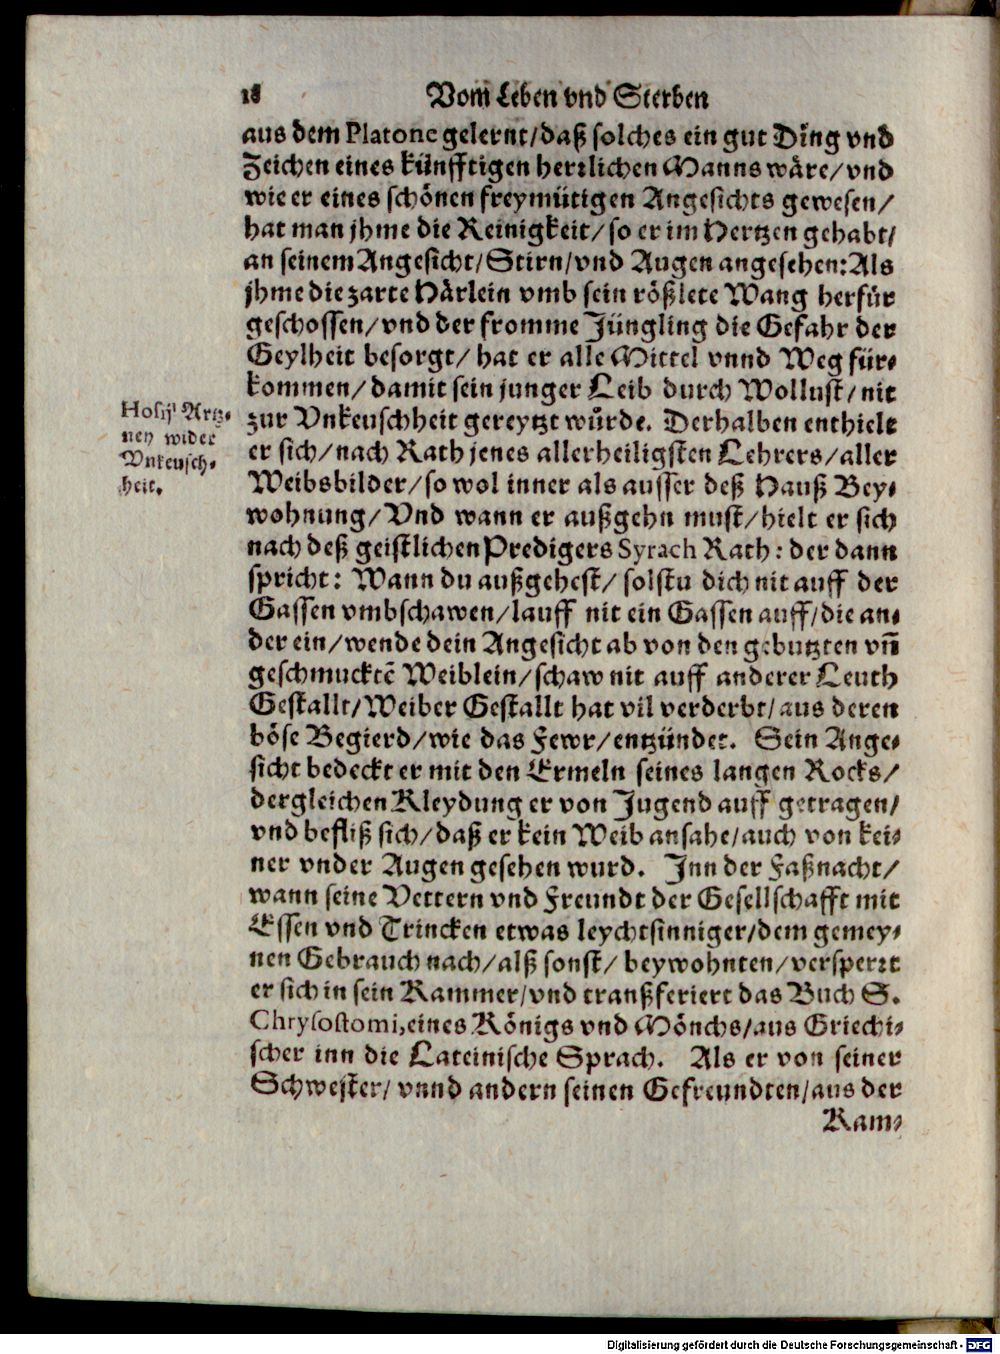 18 Vom Leben vnd Sterben
aus dem Platone gelernt/daß solches ein gut Ding vnd
Zeichen eines künfftigen herrlichen Manns wäre/vnd
wie er eines schönen freymütigen Angesichts gewesen/
hat man jhme die Reinigkeit/so er im Hertzen gehabt/
an seinem Angesicht/Stirn/vnd Augen angesehen: Als
jhme die zarte Härlein vmb sein rößlete Wang herfür
geschossen/vnd der fromme Jüngling die Gefahr der
Geylheit besorgt/ hat er alle Mittel vnnd Weg für-
kommen/damit sein junger Leib durch Wollust/nit
zur Vnkeuschheit gereytzt würde. Derhalben enthielt
er sich/nach Rath jenes allerheiligsten Lehrers/aller
Weibsbilder/so wol inner als ausser deß Hauß Bey-
wohnung/Vnd wann er außgehn must/hielt er sich
nach deß geistlichen Predigers Syrach Rath: der dann
spricht: Wann du außgehest/ solstu dich nit auff der
Gassen vmbschawen/lauff nit ein Gassen auff/die an-
der ein/wende dein Angesicht ab von den gebutzten vñ
geschmucktẽ Weiblein/schaw nit auff anderer Leuth
Gestallt/Weiber Gestallt hat vil verderbt/aus deren
böse Begierd/wie das Fewr/entzündet. Sein Ange-
sicht bedeckt er mit den Ermeln seines langen Rocks/
dergleichen Kleydung er von Jugend auff getragen/
vnd befliß sich/daß er kein Weib ansahe/auch von kei-
ner vnder Augen gesehen wurd. Inn der Faßnacht/
wann seine Vettern vnd Freundt der Gesellschafft mit
Essen vnd Trincken etwas leychtsinniger/dem gemey-
nen Gebrauch nach/alß sonst/ beywohnten/versperrt
er sich in sein Kammer/vnd tranßferiert das Buch S.
Chrysostomi, eines Königs vnd Mönchs/aus Griechi-
scher inn die Lateinische Sprach. Als er von seiner
Schwester/ vnnd andern seinen Gefreundten/aus der
Kam-
Hosij Artz-
ney wider
Vnkeusch-
heit.
Digitalisierung gefördert durch die Deutsche Forschungsgemeinschaft - DFG